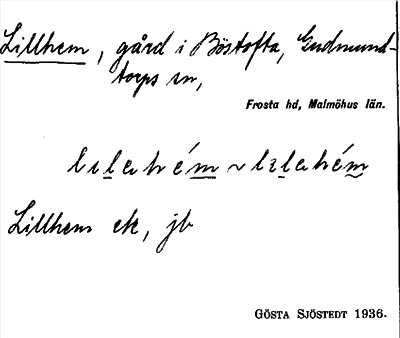 Lillhem, gård i Böstofta, Gudmund-
torps sn,
Frosta hd, Malmöhus län.
Lillhem ek, jb
GÖSTA SJÖSTEDT 1936.